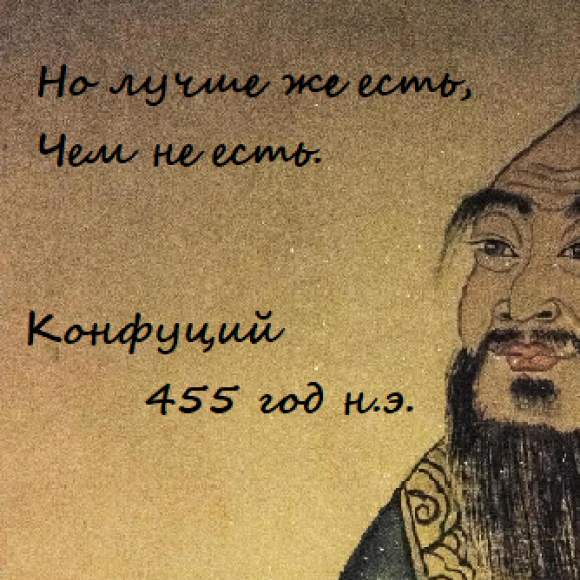 Но лучше же есть,
Чем не есть.
Конфуций
455 год н.э.